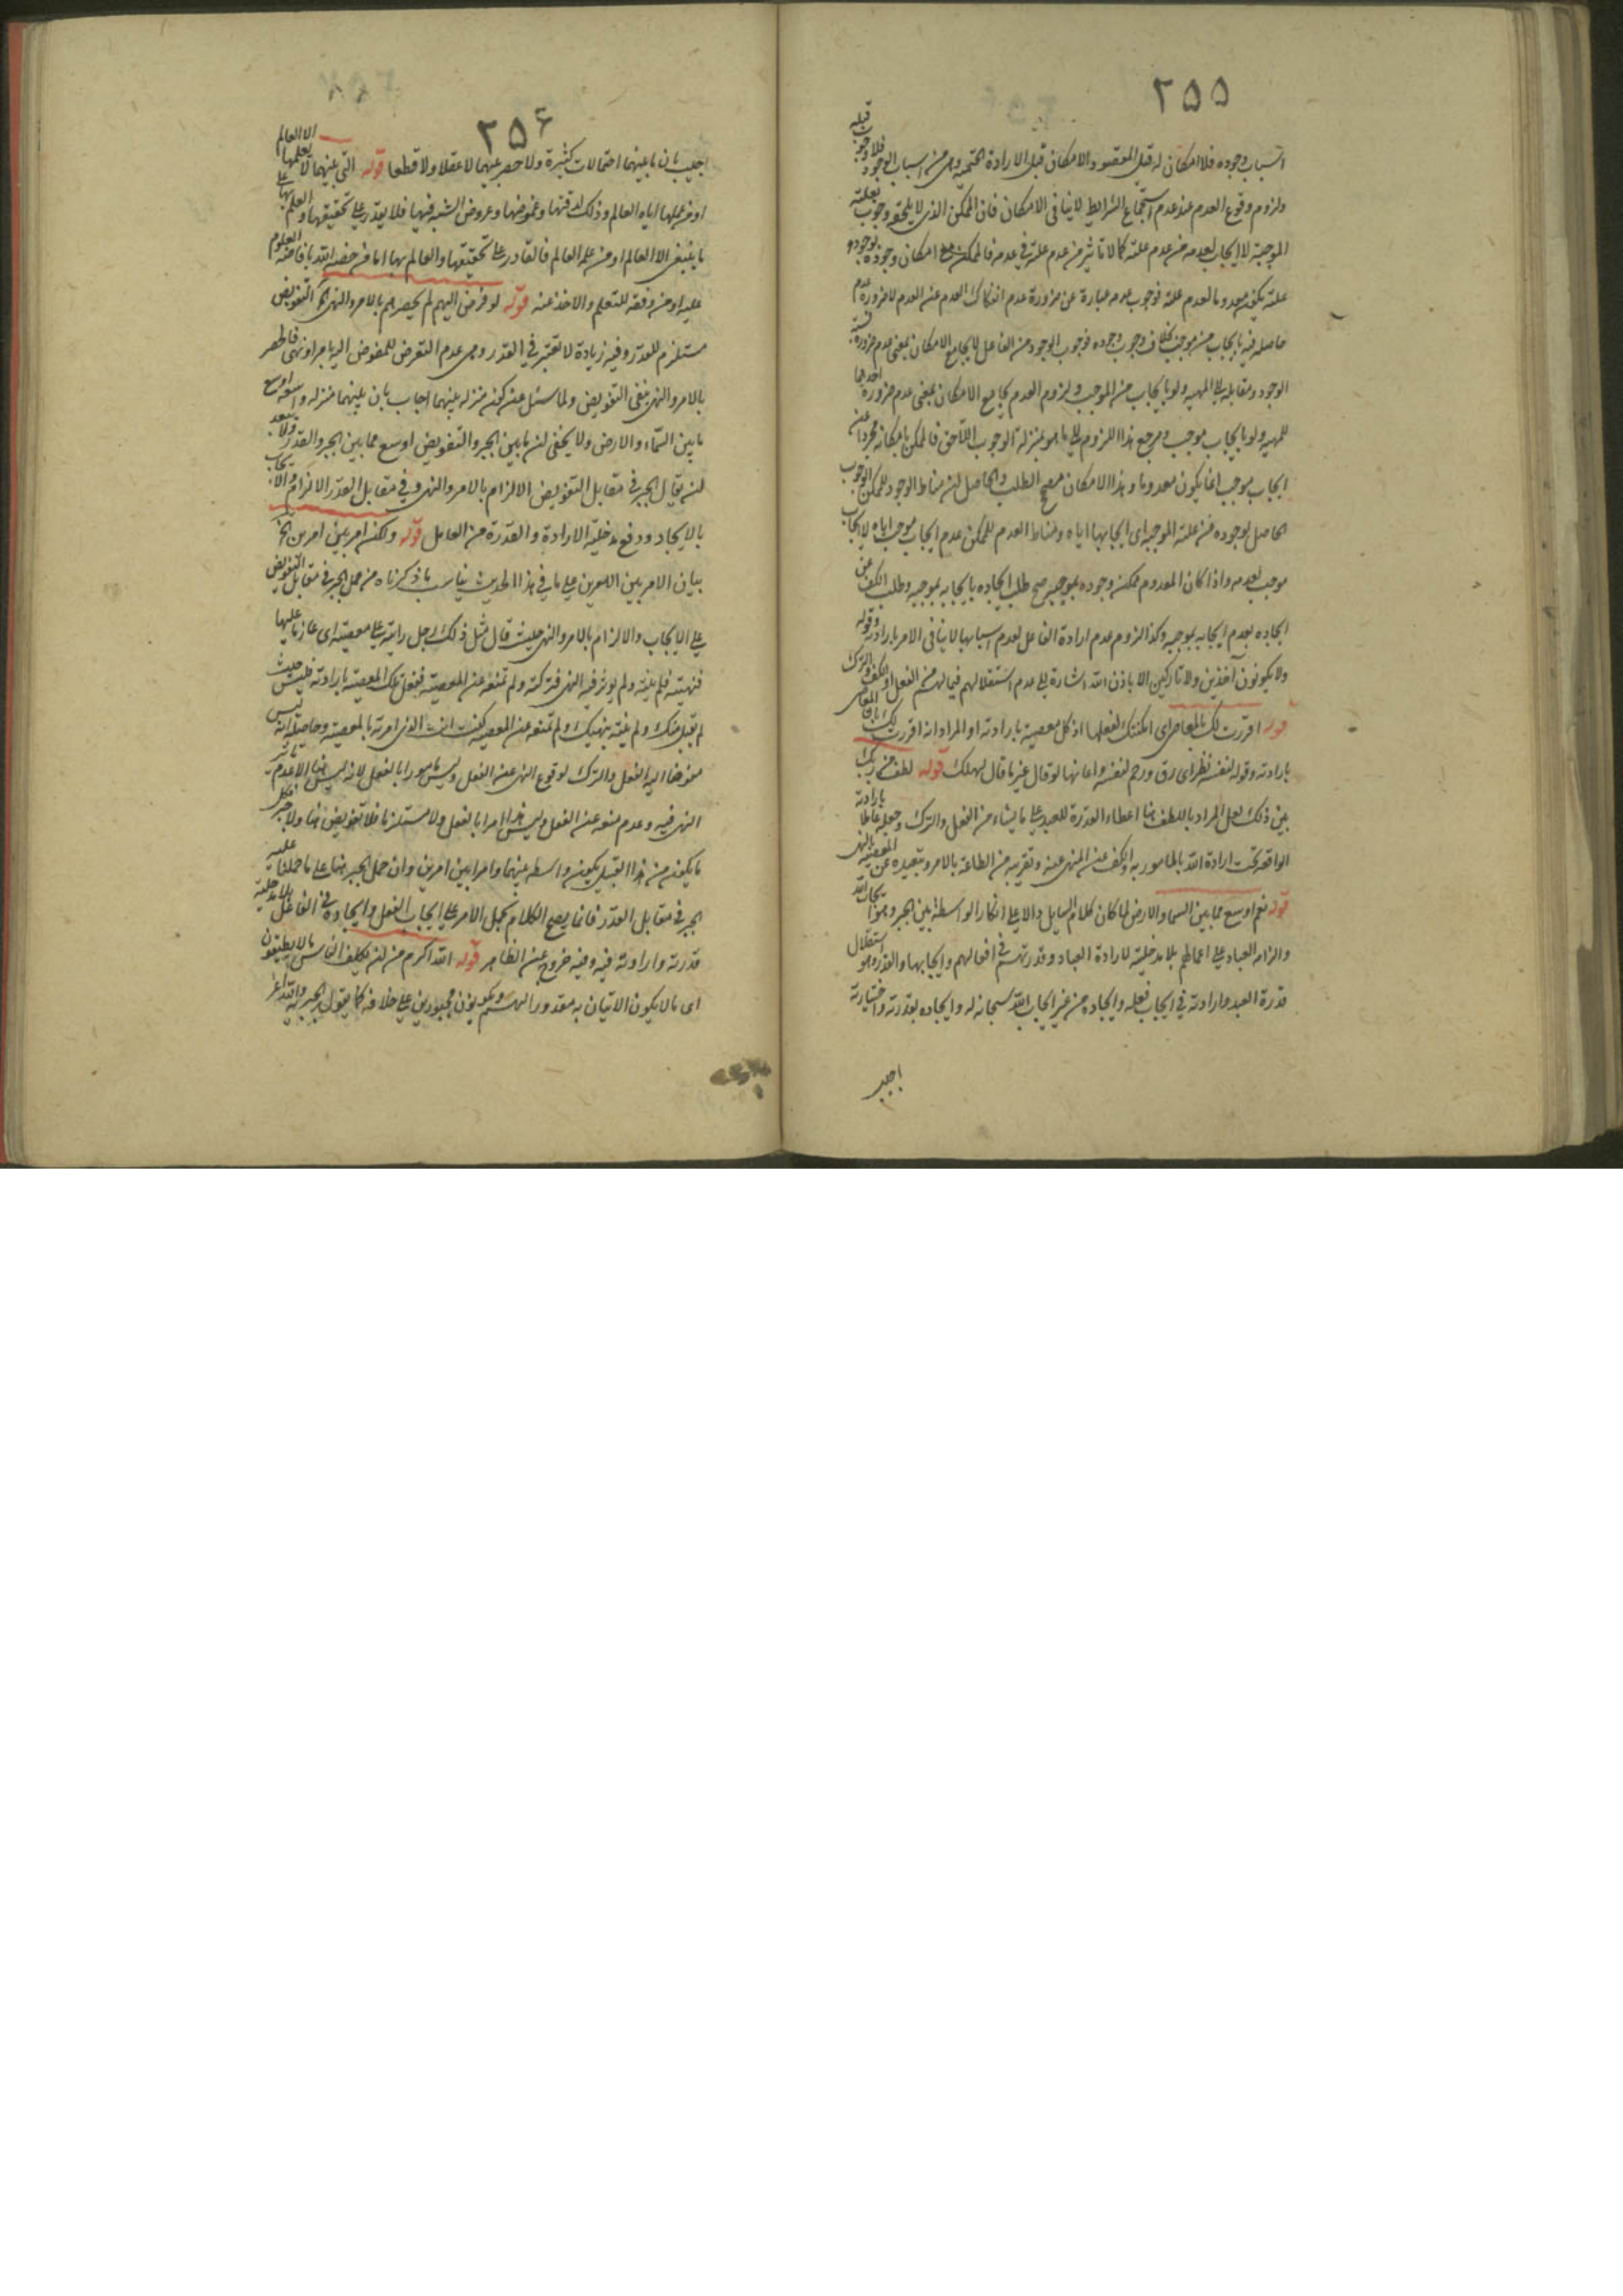 ٢٥٥
اسباب وجوده فلا امكان له قبل المقصود والامكان قبل الارادة الحتمية وهى من اسباب الوجود فلا وجوب قبله
ولزوم وقوع العدم عند عدم استجماع الشرايط لا ينافى الامكان فان الممكن الذى لا يلحقه وجوب بعلته
الموجبة لا ايجاب لعدمه من عدم علته كما لا تاثير من عدم علته فى عدمه فالممكن مع امكان وجوده بوجود
علته يكون معدوما لعدم علته فوجوب عدمه عبارة عن ضرورة عدم انفكاك العدم عن العدم لا ضرورة عدم
حاصله فيه بايجاب من موجب بخلاف وجوب وجوده فوجوب الوجود من الفاعل لا يجامع الامكان بمعنى عدم ضرورة
الوجود ومقابله الى المهية ولو بايجاب من الموجب ولزوم العدم يجامع الامكان بمعنى عدم ضرورة احدهما
للمهية ولو بايجاب موجب ومرجع هذا اللزوم الى ما هو بمنزلة الوجوب اللاحق فالممكن بامكانه مجردا عن
ايجاب موجب انما يكون معدوما وهذا الامكان مصحح الطلب والحاصل ان مناط الوجود للممكن الوجوب
الحاصل لوجوده من علته الموجبة اى ايجابها اياه ومناط العدم للممكن عدم ايجاب موجب اياه لا ايجاب
موجب لعدمه واذا كان المعدوم ممكن وجوده بموجبه صح طلب ايجاده بايجابه بموجبه وطلب الكف عن
ايجاده بعدم ايجابه بموجبه وكذا لزوم عدم ارادة الفاعل لعدم اسبابها لا ينافى الامر بارادته وقوله
ولا يكونون آخذين ولا تاركين الا باذن الله اشارة الى عدم استقلالهم فيما لهم من الفعل او الكف والترك
قوله اقررت لك بالمعاصى اى امكنتك لفعلها اذ كل معصية بارادته او المراد انه اقررت لك
بارادته وقوله لنفسه نظر اى رق ورحم لنفسه واعانها لو قال غير ما قال لهلك قوله لطف من ربك
بين ذلك لعل المراد باللطف هنا اعطاء القدرة للعبد على ما يشاء من الفعل والترك وجعله عاملا بارادته
الواقعة تحت ارادة الله بالمامور به والكف عن المنهى عنه وتقريبه من الطاعة بالامر وتبعيده عن المعصية بالنهى
قوله نعم اوسع مما بين السماء والارض لما كان كلام السايل دالا على انكار الواسطة بين الجبر وهو ايجاب الله
والزامه العباد على اعمالهم بلا مدخلية لارادة العباد وقدرتهم فى افعالهم وايجابها والقدر وهو استقلال
قدرة العبد وارادته فى ايجاب فعله وايجاده من غير ايجاب الله سبحانه له وايجاده بقدرته واختيارته
اجيب
٢٥٤
اجيب بان ما بينهما احتمالات كثيرة ولا حصر بينهما لا عقلا ولا قطعا قوله التى بينهما لا يعلمها الا العالم
او من علمها اياه العالم وذلك لدقتها وغموضها وعروض الشبه فيها فلا يقدر على تحقيقها والعلم بها على
ما ينبغى الا العالم او من علمه العالم فالقادر على تحقيقها والعالم بها اما من خصه الله بافاضة العلوم
عليه او من وفقه للتعلم والاخذ عنه قوله لو فوض اليهم لم يحصرهم بالامر والنهى الخ التفويض
مستلزم للقدر وفيه زيادة لا تعتبر فى القدر وهى عدم التعرض للمفوض اليه بامر او نهى فالحصر
بالامر والنهى ينفى التفويض ولما سئل عن كونه منزلة بينهما اجاب بان بينهما منزلة واسعة اوسع
ما بين السماء والارض ولا يخفى ان ما بين الجبر والتفويض اوسع مما بين الجبر والقدر ولا يبعد
ان يقال الجبر فى مقابل التفويض الالزام بالامر والنهى وفى مقابل القدر الالزام والايجاب
بالايجاد ودفع مدخلية الارادة والقدرة من العامل قوله ولكن امر بين امرين الخ
بيان الامر بين الامرين على ما فى هذا الحديث يناسب ما ذكرناه من حمل الجبر فى مقابل التفويض
على الايجاب والالزام بالامر والنهى حيث قال مثل ذلك رجل رايته على معصية اى عازما عليها
فنهيته فلم ينته ولم يوثر فيه النهى فتركته ولم تمنعه عن المعصية ففعل تلك المعصية بارادته فليس حيث
لم يقبل منك ولم ينته بنهيك ولم تمنعه عن المعصية كنت انت الذى امرته بالمعصية وحاصله انه ليس
مفوضا اليه الفعل والترك لوقوع النهى عن الفعل وليس مامورا بالفعل لانه ليس هنا الا عدم تاثير
النهى فيه وعدم منعه عن الفعل وليس هذا امرا بالفعل ولا مستلزما فلا تفويض هنا ولا جبر فكل
ما يكون من هذا القبيل يكون واسطة بينهما وامرا بين امرين وان حمل الجبر هنا على ما حملنا عليه
الجبر فى مقابل القدر فانما يصح الكلام بحمل الامر على ايجاب الفعل وايجاده فى الفاعل بلا مدخلية
قدرته وارادته فيه وفيه خروج عن الظاهر قوله الله اكرم من ان يكلف الناس ما لا يطيقون
اى ما لا يكون الاتيان به مقدورا لهم ويكونون مجبورين على خلافه كما يقول الجبرية والله اعز